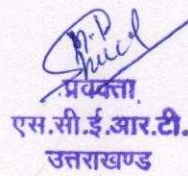 प्रवक्ता
एस.सी.ई.आर.टी.
उत्तराखण्ड